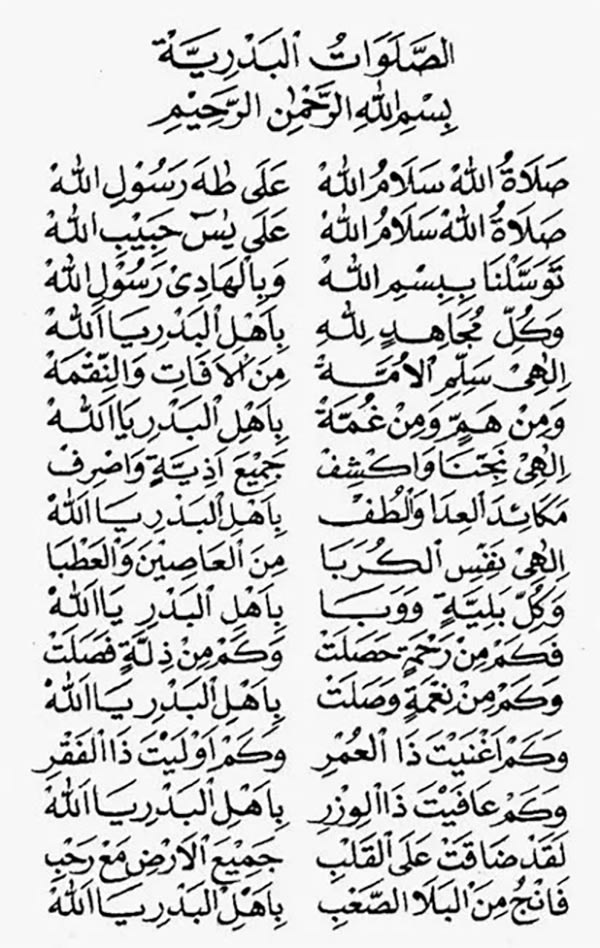 الصَّلَوَاتُ الْبَدْرِيَّةْ
بِسْمِ اللهِ الرَّحْمٰنِ الرَّحِيْمِ
صَلَاةُ اللهْ سَلَامُ اللهْ عَلَى طٰهَ رَسُوْلِ اللهْ
صَلَاةُ اللهْ سَلَامُ اللهْ عَلَى يٰسٓ حَبِيْبِ اللهْ
تَوَسَّلْنَا بِبِسْمِ اللهْ وَبِالْهَادِىْ رَسُوْلِ اللهْ
وَكُلِّ مُجَاهِدٍ لِلهِ بِاَهْلِ الْبَدْرِ يَا اَللهْ
اِلٰهِىْ سَلِّمِ الْاُمَّةْ مِنَ الْاٰفَاتِ وَالنِّقْمَةْ
وَمِنْ هَمٍّ وَمِنْ غُمَّةْ بِاَهْلِ الْبَدْرِ يَا اَللهْ
اِلٰهِىْ نَجِّنَا وَاكْشِفْ جَمِيْعَ اَذِيَّةٍ وَاصْرِفْ
مَكَائِدَ الْعِدَا وَالْطُفْ بِاَهْلِ الْبَدْرِ يَا اَللهْ
اِلٰهِىْ نَفِّسِ الْكُرَبَا مِنَ الْعَاصِيْنَ وَالْعَطْبَا
وَكُلِّ بَلِيَّةٍ وَوَبَا بِاَهْلِ الْبَدْرِ يَا اَللهْ
فَكَمْ مِنْ رَحْمَةٍ حَصَلَتْ وَكَمْ مِنْ ذِلَّةٍ فَصَلَتْ
وَكَمْ مِنْ نِعْمَةٍ وَصَلَتْ بِاَهْلِ الْبَدْرِ يَا اَللهْ
وَكَمْ اَغْنَيْتَ ذَا الْعُمْرِ وَكَمْ اَوْلَيْتَ ذَا الْفَقْرِ
وَكَمْ عَافَيْتَ ذَا الْوِزْرِ بِاَهْلِ الْبَدْرِ يَا اَللهْ
لَقَدْ ضَاقَتْ عَلَى الْقَلْبِ جَمِيْعُ الْاَرْضِ مَعْ رَحْبِ
فَانْجُ مِنَ الْبَلَا الصَّعْبِ بِاَهْلِ الْبَدْرِ يَا اَللهْ